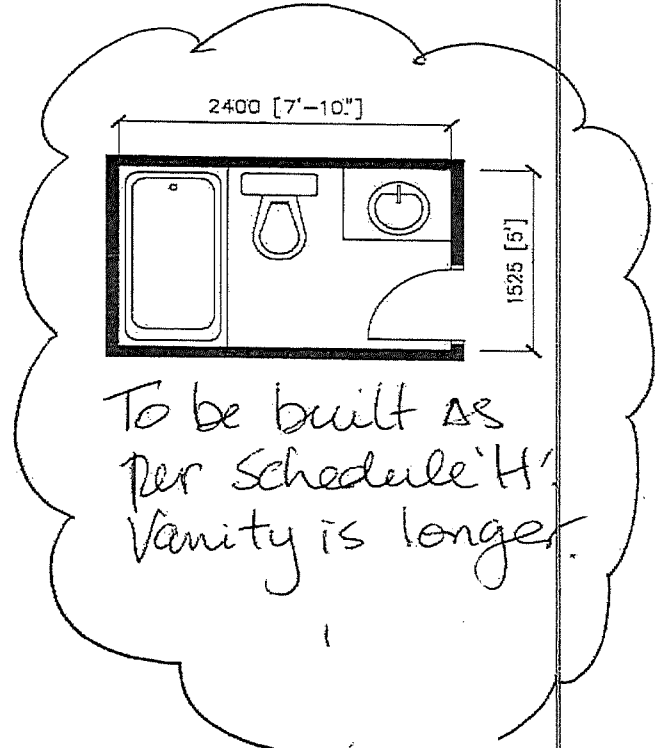 2400 [7'-10"]
1525 [5']
To be built As
per Schedule 'H'.
Vanity is longer.